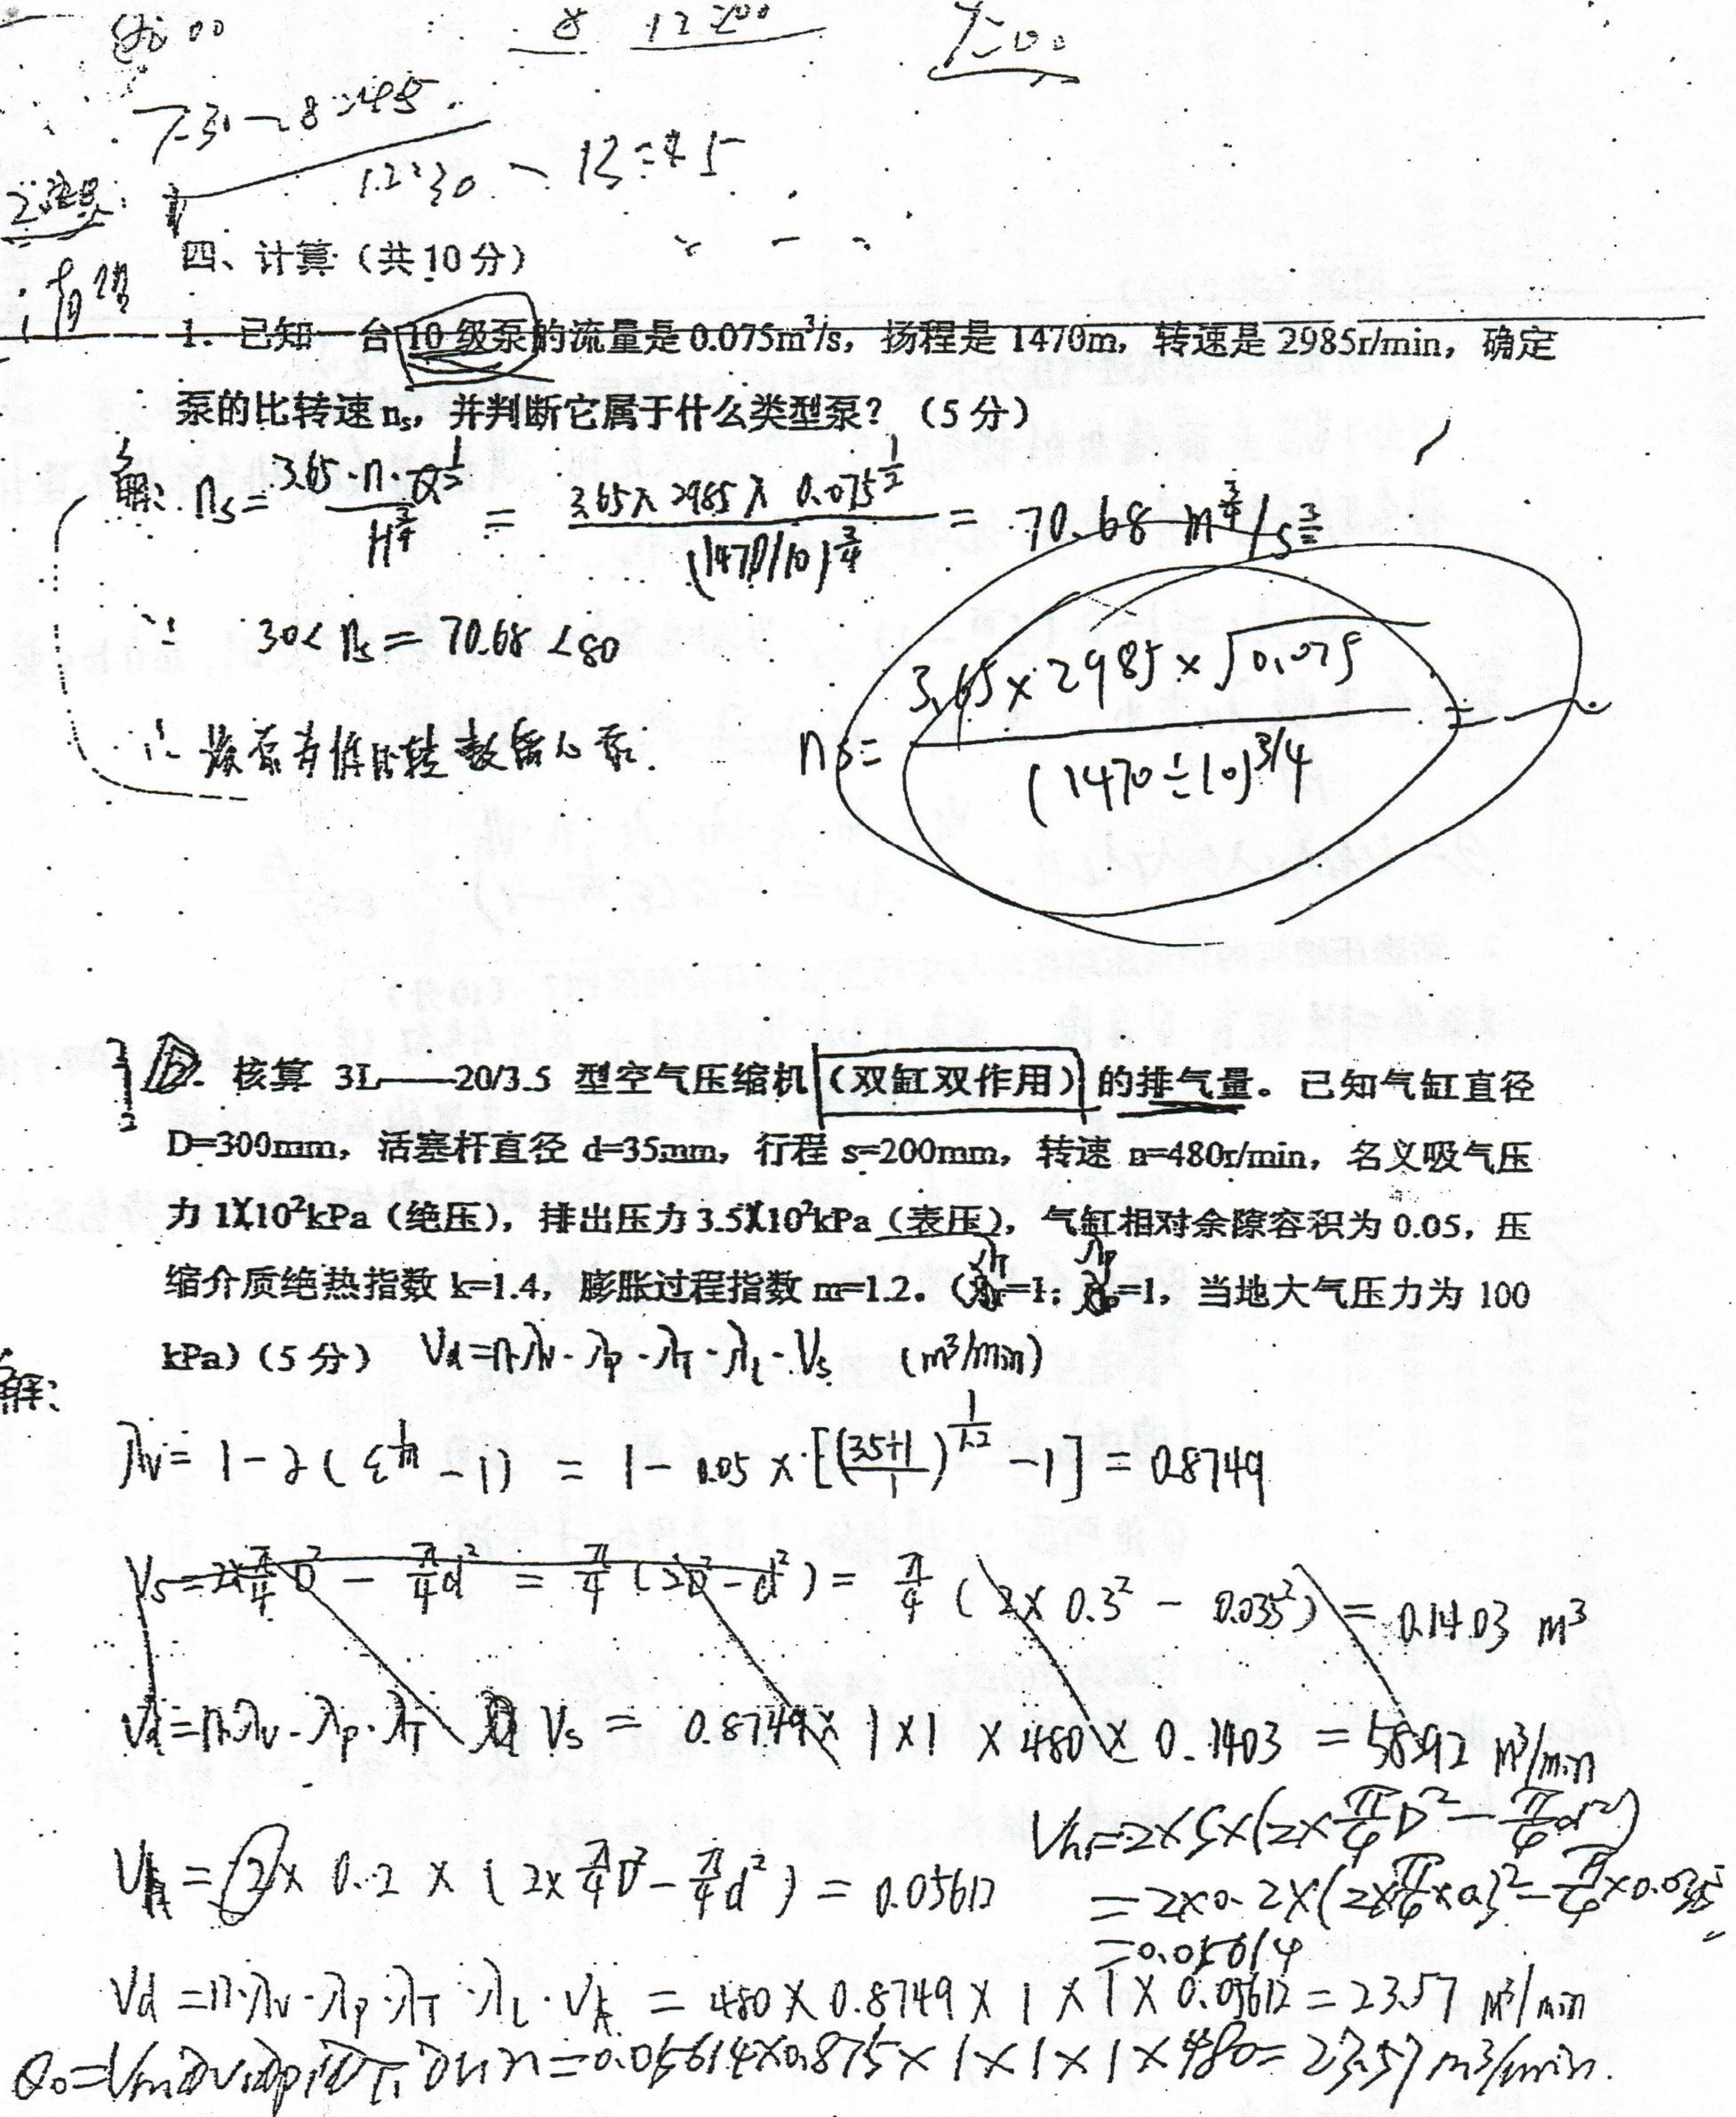 8:00
8 12:00
7:00
7:30~8:45
12:30 ~ 13:45
四、计算（共10分）
1. 已知一台10级泵的流量是0.075m³/s，扬程是1470m，转速是2985r/min，确定
泵的比转速nₛ，并判断它属于什么类型泵？（5分）
解: nₛ = 3.65·n·Q^(1/2) / H^(3/4) = 3.65×2985×0.075^(1/2) / (1470/10)^(3/4) = 70.68 m^(3/4)/s^(3/2)
∵ 30< nₛ = 70.68 <80
nₛ = 3.65×2985×√0.075 / (1470÷10)^(3/4) =
∴ 该泵为低比转数离心泵.
2. 核算 3L——20/3.5 型空气压缩机（双缸双作用）的排气量。已知气缸直径
D=300mm，活塞杆直径 d=35mm，行程 s=200mm，转速 n=480r/min，名义吸气压
力 1X10²kPa（绝压），排出压力 3.5X10²kPa（表压），气缸相对余隙容积为 0.05，压
缩介质绝热指数 k=1.4，膨胀过程指数 m=1.2。（λT=1；λp=1，当地大气压力为 100
kPa）（5分） Vd=n·λv·λp·λT·λl·Vs (m³/min)
解:
λv = 1-α(ε^(1/m) -1) = 1- 0.05 × [((3.5+1)/1)^(1/1.2) -1] = 0.8749
Vs = 2×π/4 D² - π/4 d² = π/4 (2D²-d²) = π/4 (2× 0.3² - 0.035²) = 0.1403 m³
Vd=n·λv·λp·λT Vs = 0.8749× 1×1 ×480 × 0.1403 = 58.92 m³/min
Vh = 2× 0.2 × (2×π/4 D² - π/4 d²) = 0.05612
Vh1=2×S×(2×π/4 D² - π/4 d²)
=2×0.2×(2×π/4×0.3² - π/4×0.035²
=0.05614
Vd =n·λv·λp·λT·λl·Vh = 480×0.8749×1×1×0.05612 = 23.57 m³/min
Q₀=Vh1λv1λp1λT1λl1n=0.05614×0.875×1×1×1×480=23.57 m³/min.